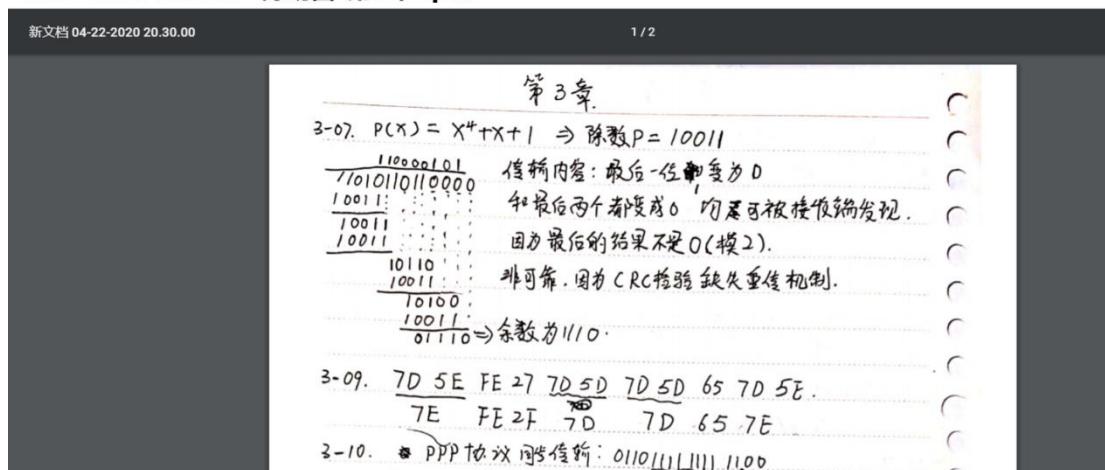 新文档 04-22-2020 20.30.00
1 / 2
第3章.
3-07. P(X) = X⁴+X+1 ⇒ 除数P = 10011
110000101
11010110110000
10011
10011
10011
10110
10011
10100
10011
01110 ⇒ 余数为1110.
传输内容: 最后一位 变为0
和最后两个都变成0, 均 可被接收端发现.
因为最后的结果不是0(模2).
非可靠. 因为CRC检验缺失重传机制.
3-09. 7D 5E FE 27 7D 5D 7D 5D 65 7D 5E.
7E FE 2F 7D 7D 65 7E
3-10. PPP协议同步传输: 0110111111111100